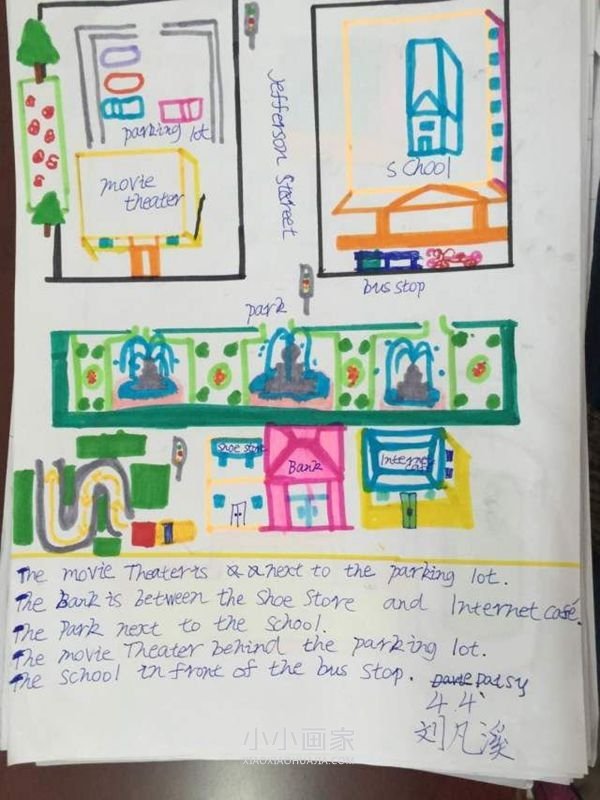 parking lot
movie
theater
Jefferson Stareet
school
bus stop
park
shoe store
Bank
Internet
café
The movie Theater is next to the parking lot.
The Bank is between the shoe store and Internet café.
The park next to the school.
The movie Theater behind the parking lot.
The school in front of the bus stop. Daisy
4.4
刘凡溪
小小画家
XIAOXIAOHUAJIA.COM